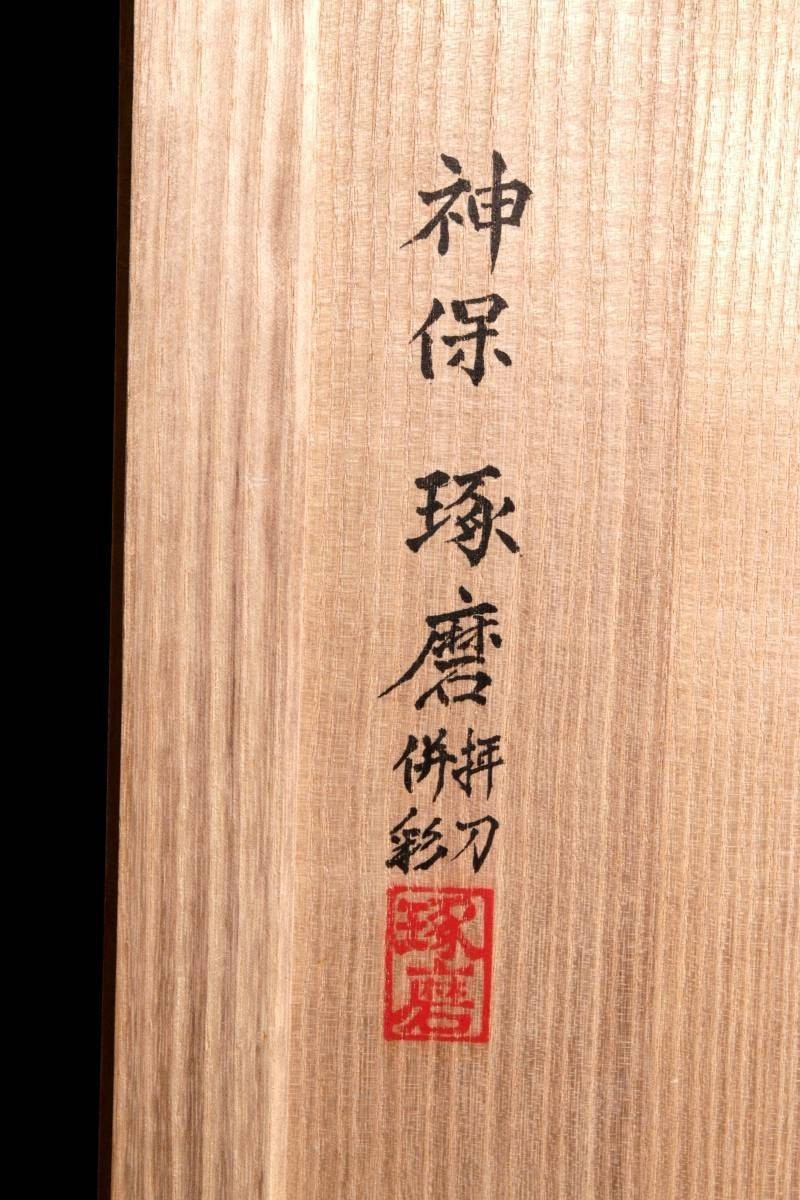 神保 琢磨
拝刀
併彩
琢磨